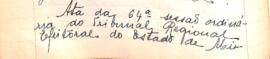 Ata da 64ª sessão ordiná-
ria do Tribunal Regional
Eleitoral do Estado de Mato